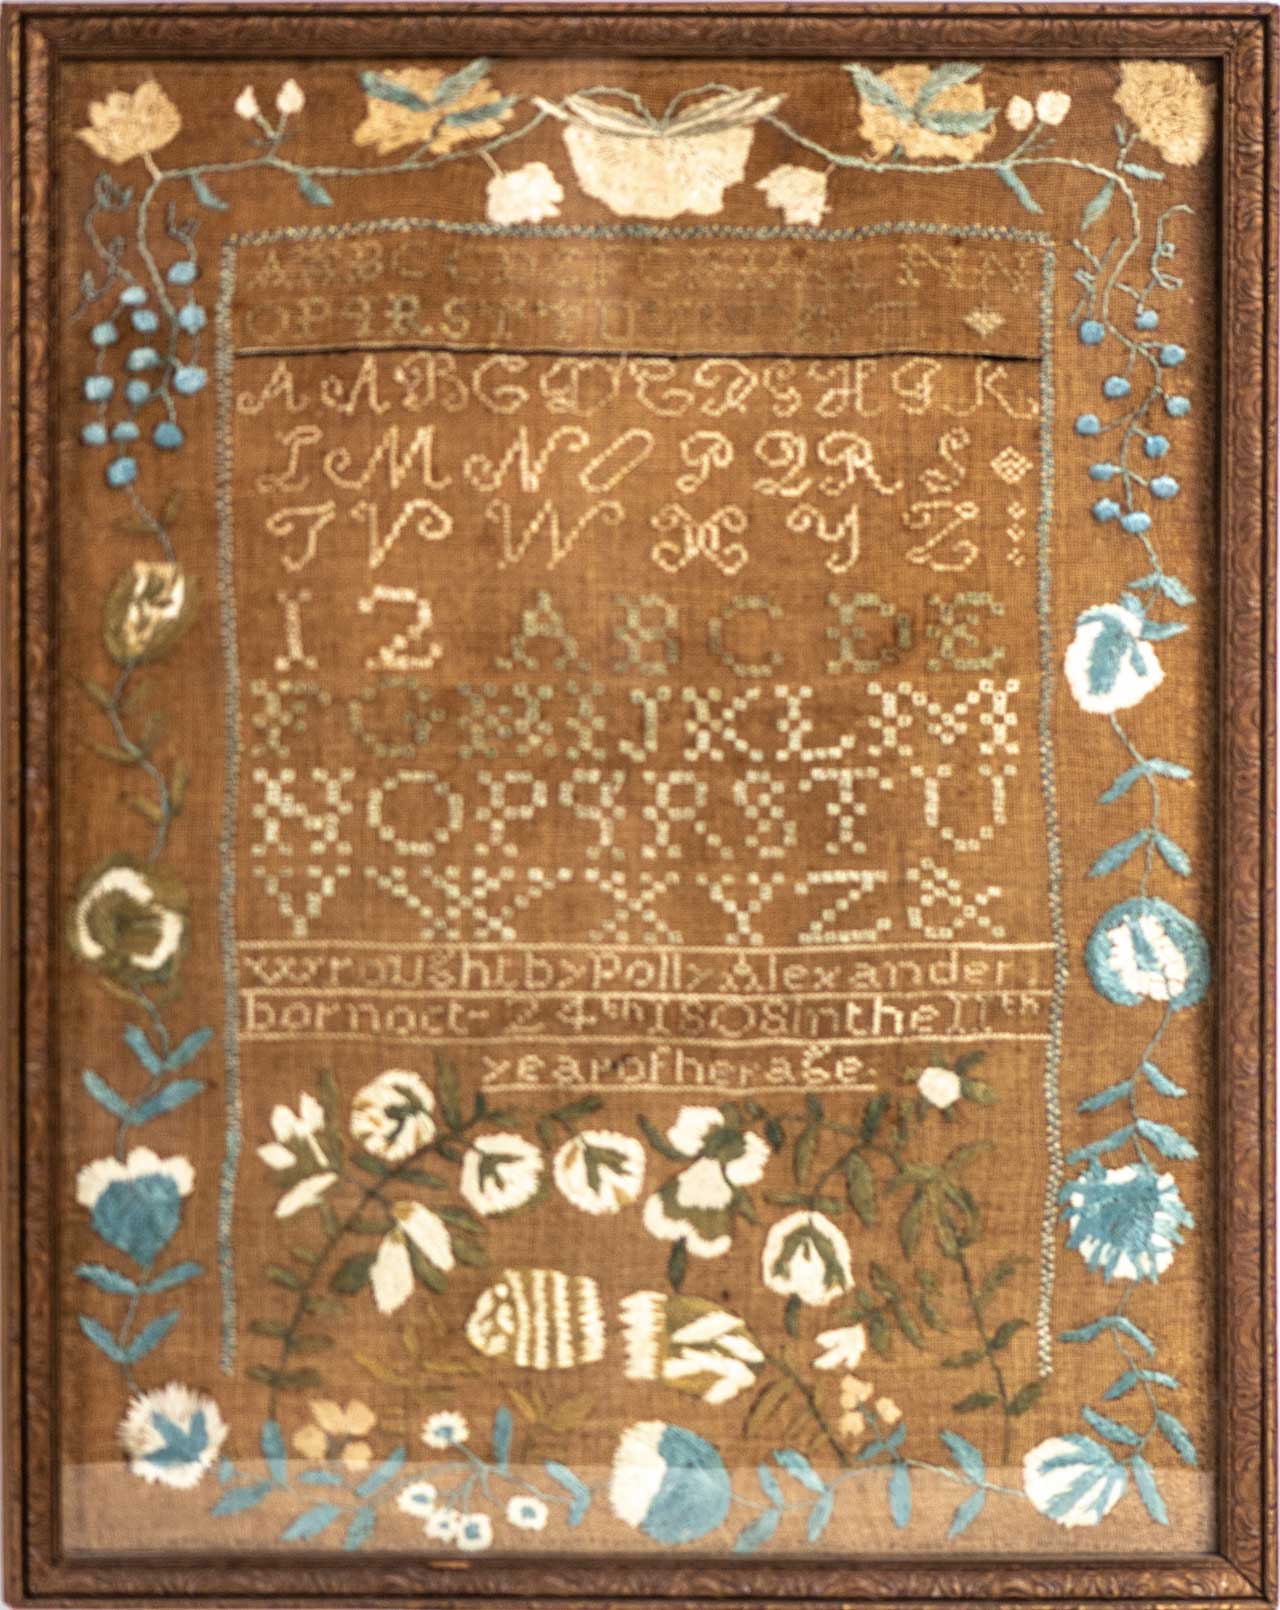 N N
O P q R S T U
A A B C D E D G H G K
L M N O P Q R S
T V W X Y Z
1 2 A B C D E
F G H I J K L M
N O P q R S T U
V W X Y Z &
wrought by Polly Alexander
born oct - 24th 1808 in the 11th
year of her age.